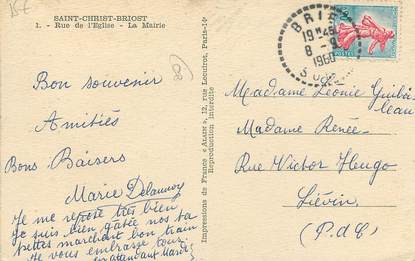 SAINT-CHRIST-BRIOST
1. - Rue de l'Eglise - La Mairie
Bon souvenir
Amitiés
Bons Baisers
Marie Delaunoy
Je me repose très bien
je suis bien gâtée nos ta
pettes marchent bon train
Je vous embrasse tous
en attendant Mardi
Impressions de France « ALAIN », 12, rue Lecuirot, Paris-14e
Reproduction interdite
19H45
8 - 9
1960
Madame Léonie
Madame Renée
Rue Victor Hugo
Liévin
(P.d.C)